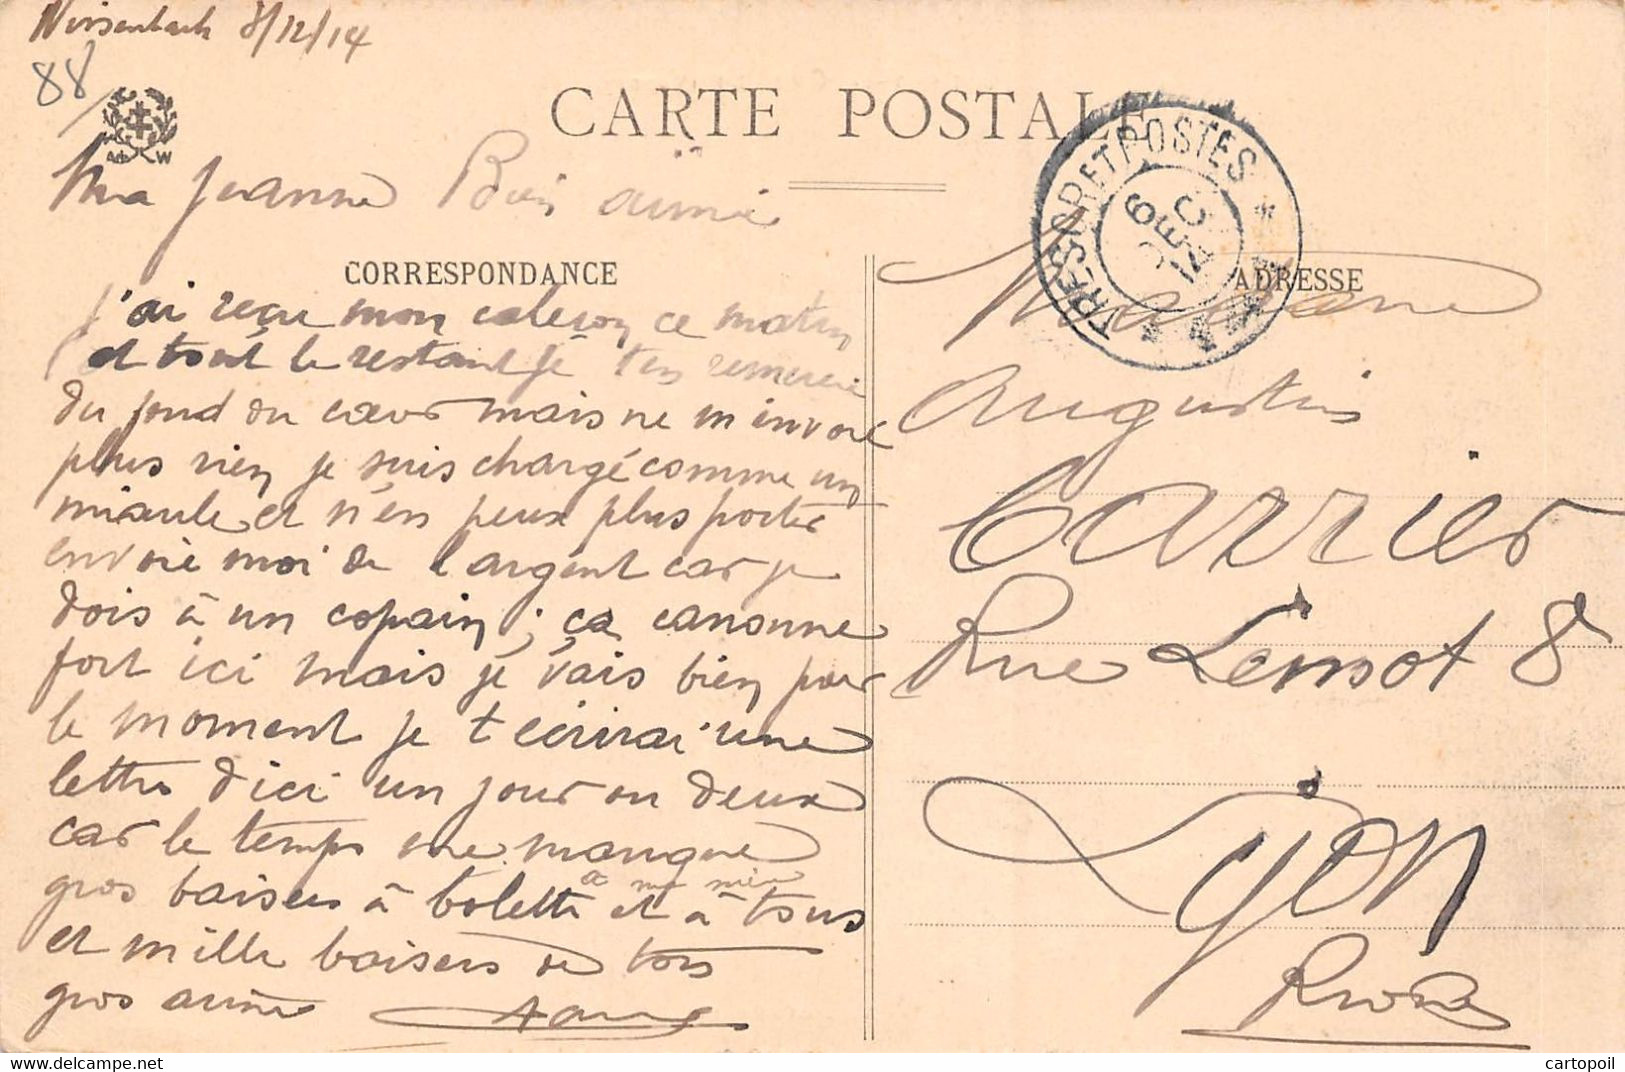 Wissenbach 3/12/14
88
CARTE POSTALE
A W
TRESOR ET POSTES
6
DEC
14
Ma Jeanne Bien aimée
CORRESPONDANCE
j'ai reçu mon caleçon ce matin
et tout le restant je t'en remercie
du fond du cœur mais ne m'envoie
plus rien je suis chargé comme un
miaule et n'en peux plus porter
envoie moi de l'argent car je
dois à un copain, ça canonne
fort ici mais je vais bien pour
le moment je t'écrirai une
lettre d'ici un jour ou deux
car le temps me manque
à ma mère
gros baisers à Colette et à tous
et mille baisers de ton
gros aimé
ADRESSE
Madame
Augustin
Carrier
Rue Lemot 8
Lyon
Rhône
cartopoil